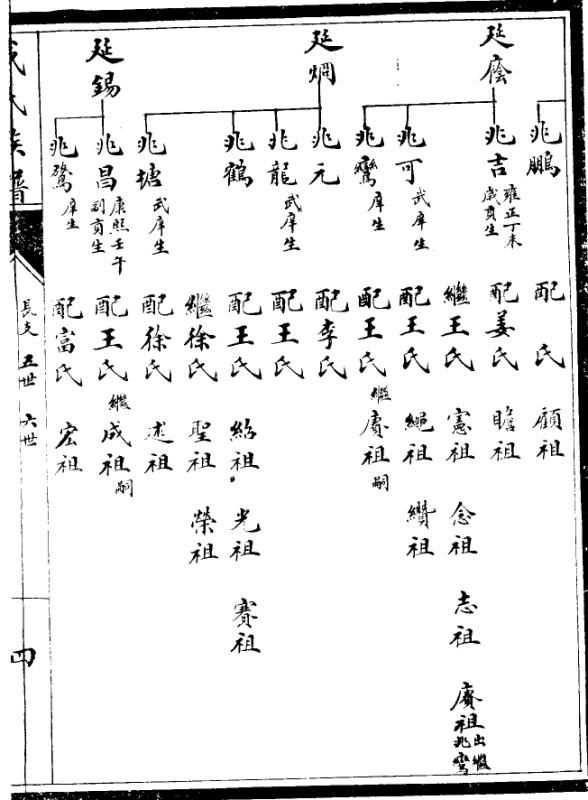 兆鵬
配 氏
顧祖
延廕
兆吉 雍正丁未歲貢生
配姜氏
瞻祖
繼王氏
憲祖
念祖
志祖
賡祖 出繼兆鸞
兆可 武庠生
配王氏
繩祖
纘祖
兆鸞 庠生
配王氏
繼賡祖嗣
延炯
兆元
配李氏
兆龍 武庠生
配王氏
兆鶴
配王氏
紹祖
光祖
賽祖
繼徐氏
聖祖
榮祖
兆塘 武庠生
配徐氏
述祖
延錫
兆昌 康熙壬午副貢生
配王氏
繼成祖嗣
兆鶩 庠生
配富氏
宏祖
氏族譜
長支 五世 六世
四